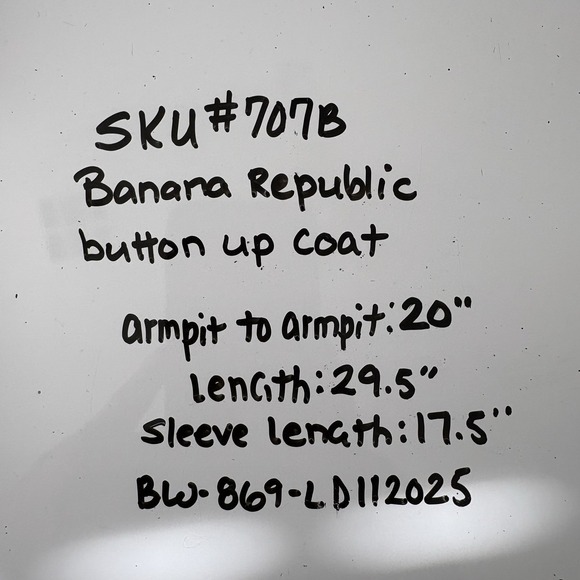 SKU#707B
Banana Republic
button up coat
armpit to armpit: 20"
length: 29.5"
sleeve length: 17.5"
BW-869-LD112025